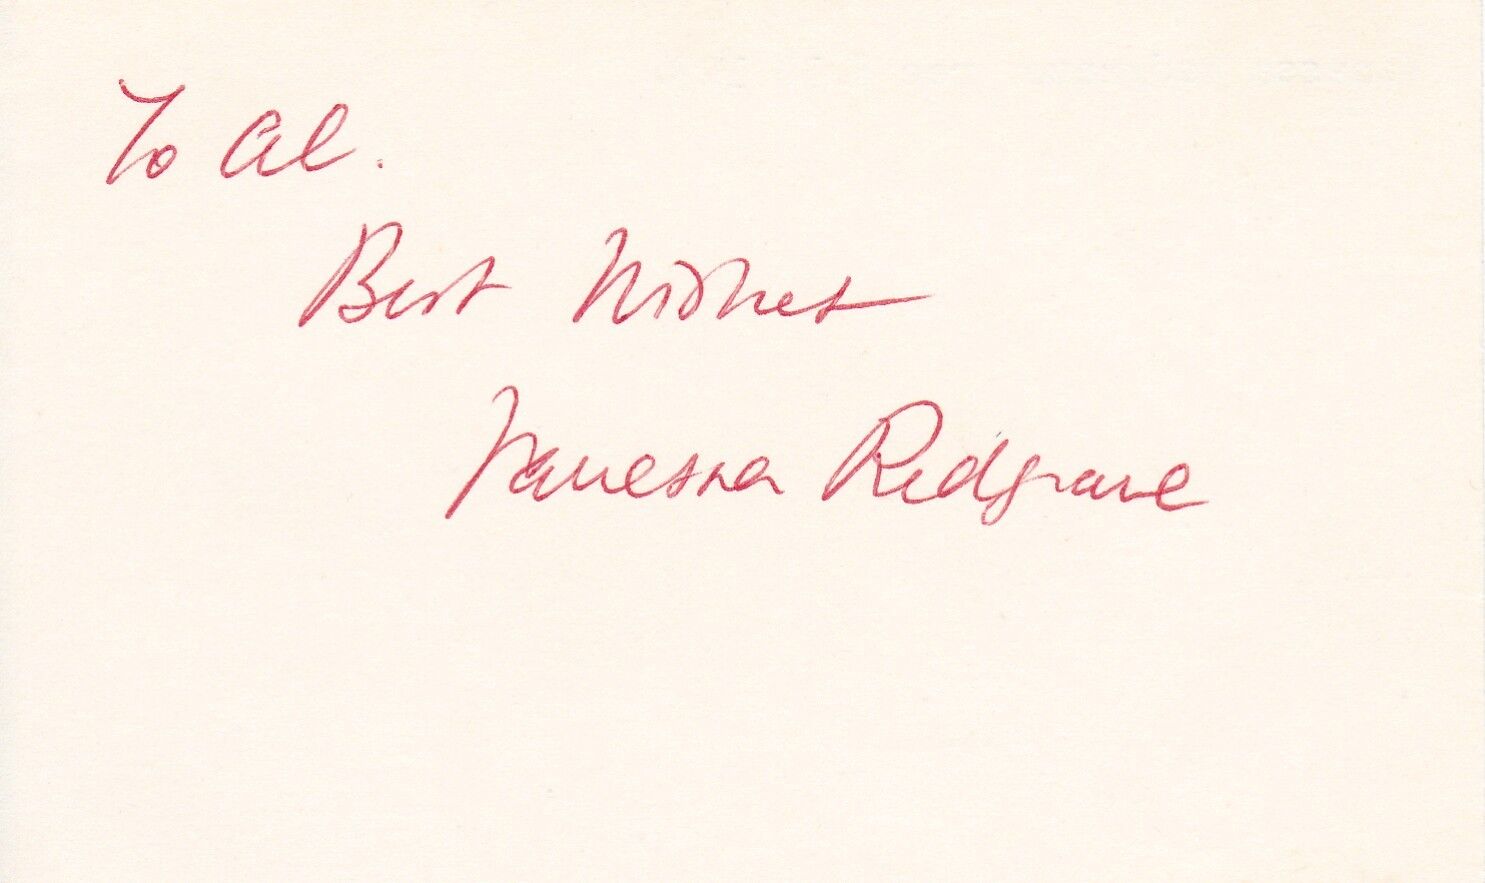 To Al.
Best Wishes
Vanessa Redgrave